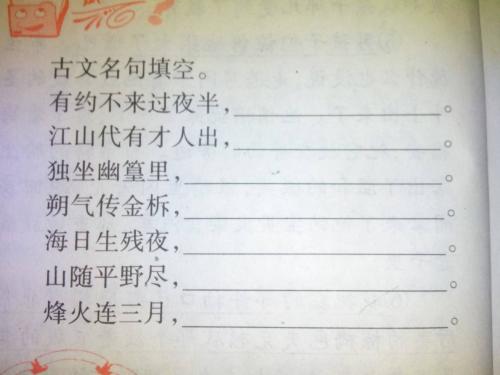 古文名句填空。
有约不来过夜半,____________。
江山代有才人出,____________。
独坐幽篁里,____________。
朔气传金柝,____________。
海日生残夜,____________。
山随平野尽,____________。
烽火连三月,____________。